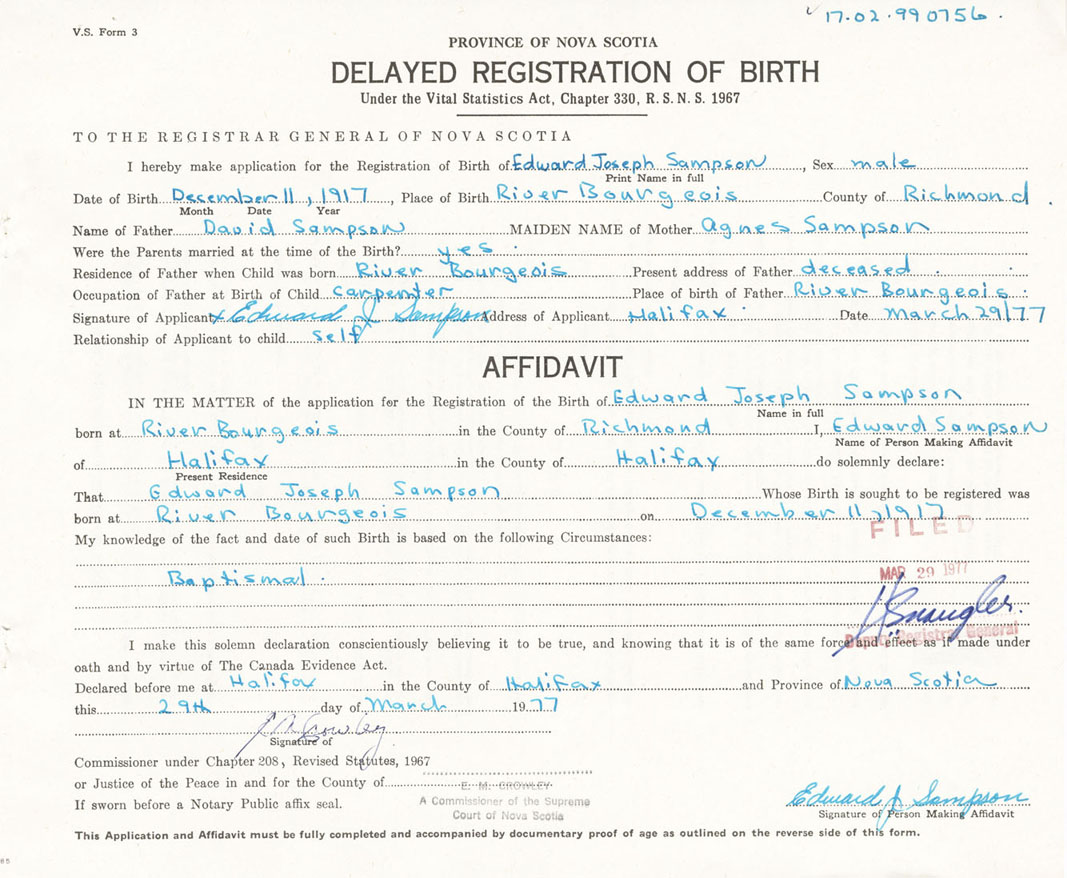 17-02-990756.
V.S. Form 3
PROVINCE OF NOVA SCOTIA
DELAYED REGISTRATION OF BIRTH
Under the Vital Statistics Act, Chapter 330, R. S. N. S. 1967
TO THE REGISTRAR GENERAL OF NOVA SCOTIA
I hereby make application for the Registration of Birth of Edward Joseph Sampson, Sex male
Print Name in full
Date of Birth December 11, 1917, Place of Birth River Bourgeois County of Richmond.
Month Date Year
Name of Father David Sampson MAIDEN NAME of Mother Agnes Sampson
Were the Parents married at the time of the Birth? yes
Residence of Father when Child was born River Bourgeois Present address of Father deceased
Occupation of Father at Birth of Child carpenter Place of birth of Father River Bourgeois
Signature of Applicant x Edward J Sampson Address of Applicant Halifax Date March 29/77
Relationship of Applicant to child self
AFFIDAVIT
IN THE MATTER of the application for the Registration of the Birth of Edward Joseph Sampson
Name in full
born at River Bourgeois in the County of Richmond I, Edward Sampson
Name of Person Making Affidavit
of Halifax in the County of Halifax do solemnly declare:
Present Residence
That Edward Joseph Sampson Whose Birth is sought to be registered was
born at River Bourgeois on December 11, 1917
FILED
My knowledge of the fact and date of such Birth is based on the following Circumstances:
MAR 29 1977
Baptismal.
Deputy Registrar General
I make this solemn declaration conscientiously believing it to be true, and knowing that it is of the same force and effect as if made under
oath and by virtue of The Canada Evidence Act.
Declared before me at Halifax in the County of Halifax and Province of Nova Scotia
this 29th day of March 1977
Crowley
Signature of
Commissioner under Chapter 208, Revised Statutes, 1967
or Justice of the Peace in and for the County of
E. M. CROWLEY
If sworn before a Notary Public affix seal.
A Commissioner of the Supreme
Court of Nova Scotia
Edward J Sampson
Signature of Person Making Affidavit
This Application and Affidavit must be fully completed and accompanied by documentary proof of age as outlined on the reverse side of this form.